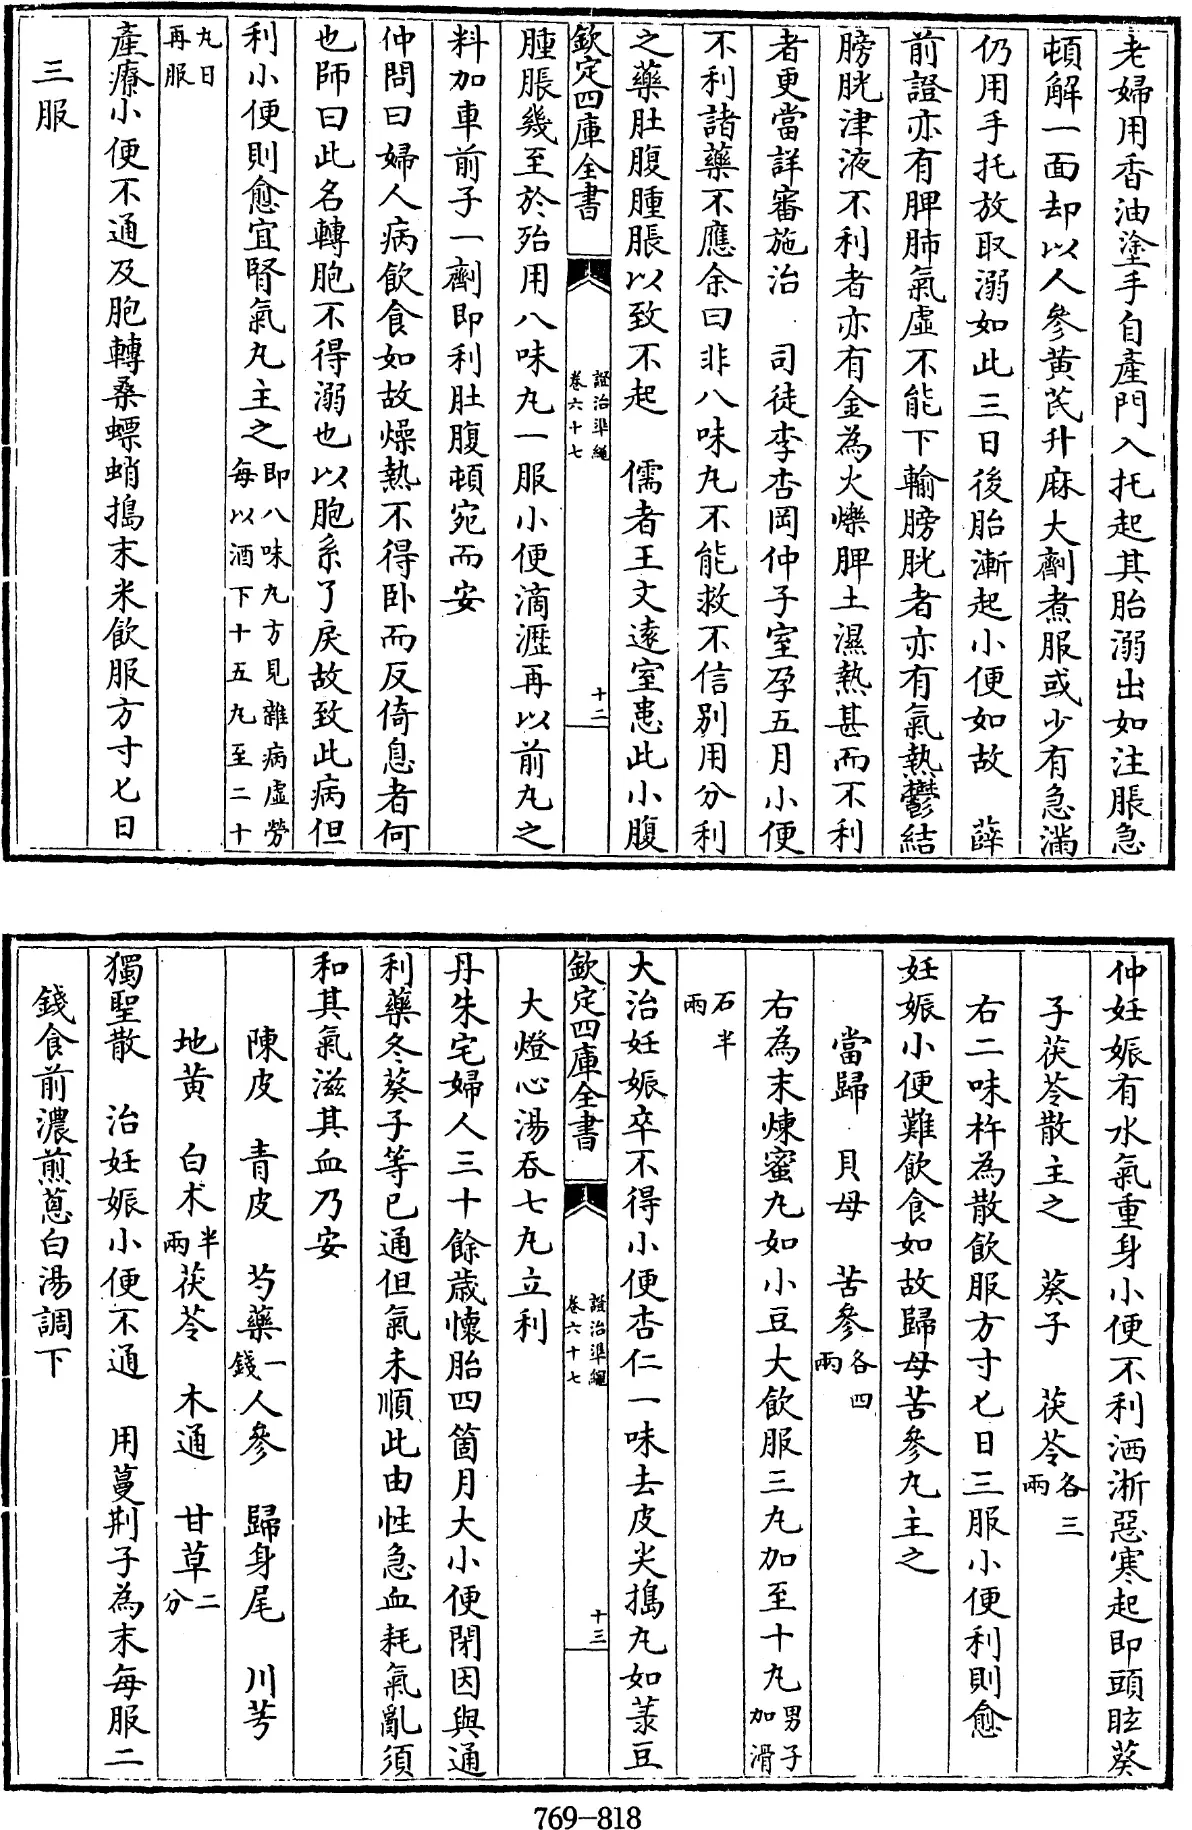 老婦用香油塗手自產門入托起其胎溺出如注脹急
頓解一面却以人參黄芪升麻大劑煮服或少有急滿
仍用手托放取溺如此三日後胎漸起小便如故 薛
前證亦有脾肺氣虛不能下輸膀胱者亦有氣熱鬱結
膀胱津液不利者亦有金為火爍脾土濕熱甚而不利
者更當詳審施治 司徒李杏岡仲子室孕五月小便
不利諸藥不應余曰非八味丸不能救不信别用分利
之藥肚腹腫脹以致不起 儒者王文遠室患此小腹
欽定四庫全書
證治準繩
卷六十七
十二
腫脹幾至於殆用八味丸一服小便滴瀝再以前丸之
料加車前子一劑即利肚腹頓宛而安
仲問曰婦人病飲食如故燥熱不得卧而反倚息者何
也師曰此名轉胞不得溺也以胞系了戾故致此病但
利小便則愈宜腎氣丸主之
即八味丸方見雜病虛勞
每以酒下十五丸至二十
丸日
再服
產療小便不通及胞轉桑螵蛸搗末米飲服方寸匕日
三服
仲妊娠有水氣重身小便不利洒淅惡寒起即頭眩葵
子茯苓散主之 葵子 茯苓各三兩
右二味杵為散飲服方寸匕日三服小便利則愈
妊娠小便難飲食如故歸母苦參丸主之
當歸 貝母 苦參各四兩
右為末煉蜜丸如小豆大飲服三丸加至十丸
男子
加滑
石半
兩
大治妊娠卒不得小便杏仁一味去皮尖搗丸如菉豆
欽定四庫全書
證治準繩
卷六十七
十三
大燈心湯吞七丸立利
丹朱宅婦人三十餘歲懷胎四箇月大小便閉因與通
利藥冬葵子等已通但氣未順此由性急血耗氣亂須
和其氣滋其血乃安
陳皮 青皮 芍藥一錢人參 歸身尾 川芎
地黄 白术半兩茯苓 木通 甘草二分
獨聖散 治妊娠小便不通 用蔓荆子為末每服二
錢食前濃煎蔥白湯調下
769-818